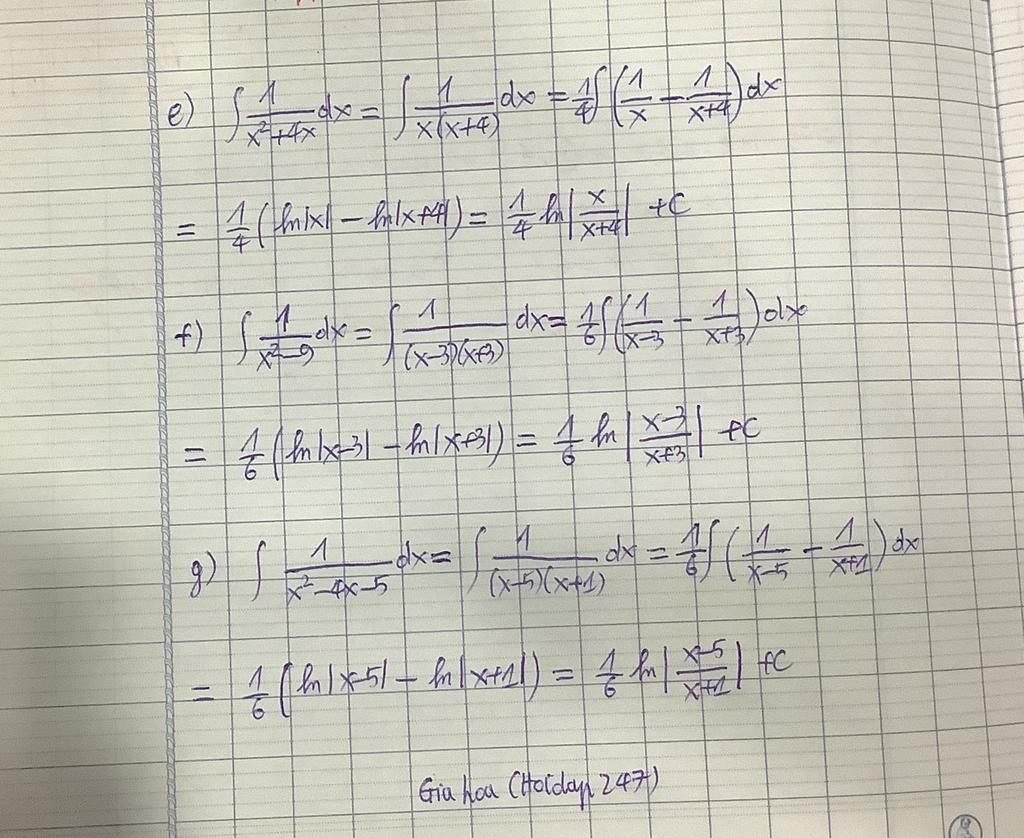 e) ∫ 1/(x²+4x) dx = ∫ 1/(x(x+4)) dx = 1/4 ∫ (1/x − 1/(x+4)) dx
= 1/4 (ln|x| − ln|x+4|) = 1/4 ln|x/(x+4)| +C
f) ∫ 1/(x²−9) dx = ∫ 1/((x−3)(x+3)) dx = 1/6 ∫ (1/(x−3) − 1/(x+3)) dx
= 1/6 (ln|x−3| − ln|x+3|) = 1/6 ln|(x−3)/(x+3)| +C
g) ∫ 1/(x²−4x−5) dx = ∫ 1/((x−5)(x+1)) dx = 1/6 ∫ (1/(x−5) − 1/(x+1)) dx
= 1/6 (ln|x−5| − ln|x+1|) = 1/6 ln|(x−5)/(x+1)| +C
Gia hoa (Hoidap 247)